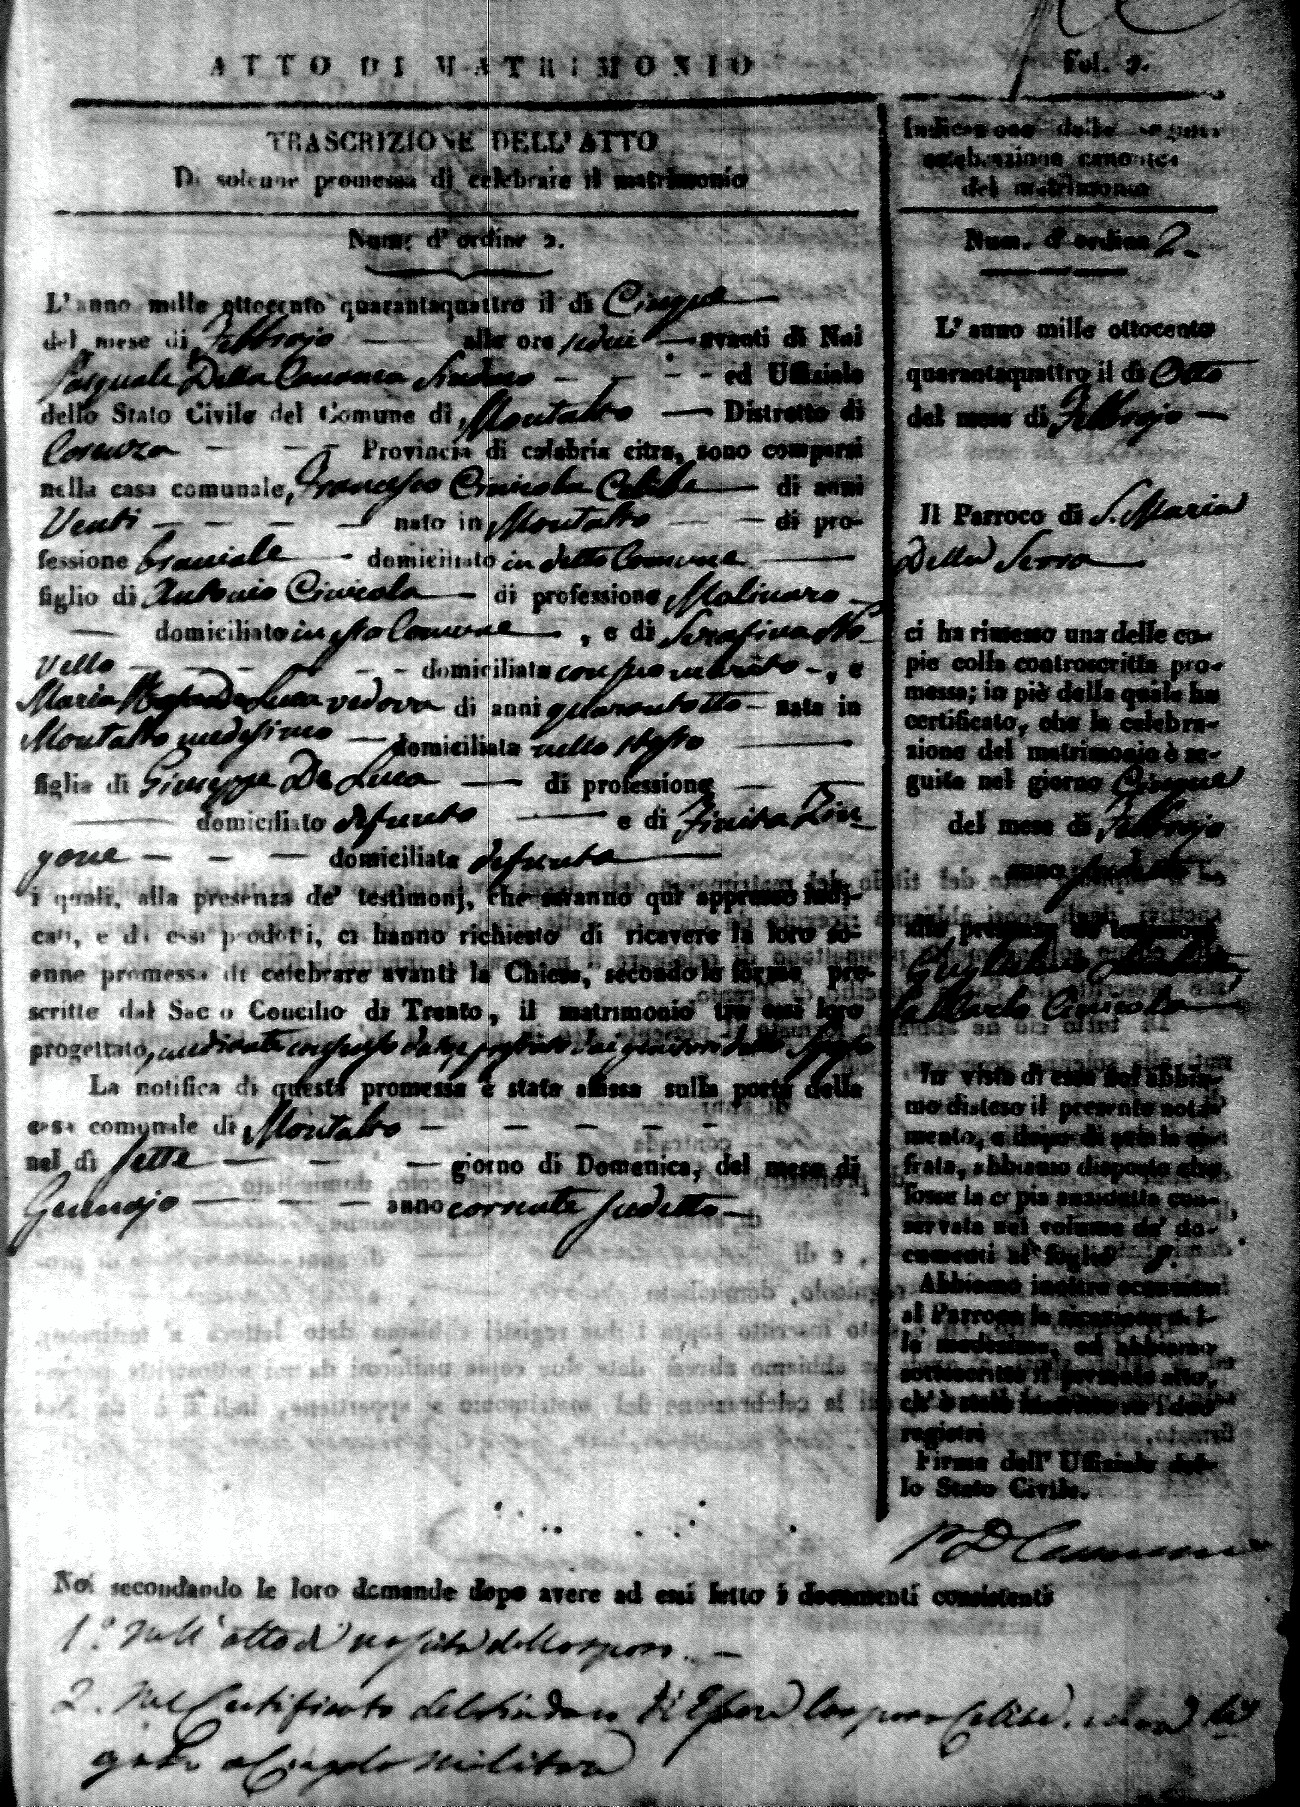 ATTO DI MATRIMONIO
Fol. 2.
TRASCRIZIONE DELL' ATTO
Di solenne promessa di celebrare il matrimonio
Num. d' ordine 2.
L' anno mille ottocento quarantaquattro il dì Cinque
del mese di Febbrajo alle ore sedici avanti di Noi
Pasquale Della Cananea Sindaco ed Uffiziale
dello Stato Civile del Comune di Montalto Distretto di
Cosenza Provincia di calabria citra, sono comparsi
nella casa comunale, Francesco Civicola Celibe di anni
Venti nato in Montalto di pro-
fessione domiciliato in detto Comune
figlio di Antonio Civicola di professione Molinaro
domiciliato in Comune, e di Serafina No
vello domiciliata con suo marito, e
Maria De Luca vedova di anni quarantotto nata in
Montalto medesimo domiciliata nello stesso
figlia di Giuseppe De Luca di professione
domiciliato defunto e di
gone domiciliata defunta
i quali, alla presenza de' testimonj, che saranno quì appresso indi-
cati, e da essi prodotti, ci hanno richiesto di ricevere la loro so-
enne promessa di celebrare avanti la Chiesa, secondo le forme pre-
scritte dal Sacro Concilio di Trento, il matrimonio tra essi loro
progettato, mediante dello Sposo
La notifica di questa promessa è stata affissa sulla porta della
casa comunale di Montalto
nel dì sette giorno di Domenica, del mese di
Gennajo anno corrente sudetto
Indicazione della seguita
celebrazione canonica
del matrimonio
Num. d' ordine 2.
L' anno mille ottocento
quarantaquattro il dì Otto
del mese di Febbrajo
Il Parroco di S. Maria
Della Serra
ci ha rimesso una delle co-
pie colla controscritta pro-
messa; in piè della quale ha
certificato, che la celebra-
zione del matrimonio è se-
guita nel giorno Cinque
del mese di Febbrajo
anno sudetto
alla presenza de' testimonj
Civicola
In vista di essa noi abbia-
mo disteso il presente nota-
mento, e dopo di averla ci-
frata, abbiamo disposto che
fosse la copia anzidetta con-
servata nel volume de' do-
cumenti al foglio 8.
Abbiamo inoltre accusato
al Parroco la ricezione del-
la medesima, ed abbiamo
sottoscritto il presente atto,
ch' è stato inscritto su i due
registri
Firma dell' Uffiziale del-
lo Stato Civile.
Noi secondando le loro domande dopo avere ad essi letto i documenti consistenti
1.° Nell' atto di nascita dello sposo.
2. Nel Certificato del Sindaco di Essere lo sposo Celibe,
Militare